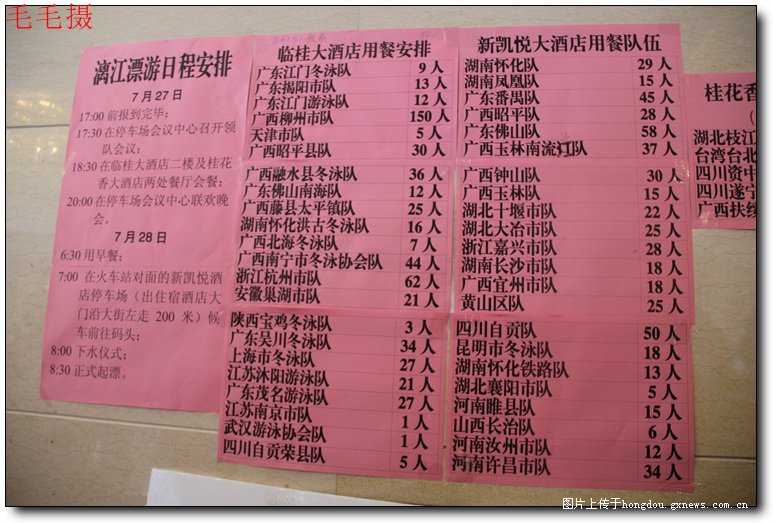 毛毛摄
漓江漂游日程安排
7月27日
17:00 前报到完毕;
17:30 在停车场会议中心召开领
队会议;
18:30 在临桂大酒店二楼及桂花
香大酒店两处餐厅会餐;
20:00 在停车场会议中心联欢晚
会。
7月28日
6:30 用早餐;
7:00 在火车站对面的新凯悦酒
店停车场（出住宿酒店大
门沿大街左走 200 米）候
车前往码头;
8:00 下水仪式;
8:30 正式起漂。
临桂大酒店用餐安排
广东江门冬泳队 9人
广东揭阳市队 13人
广东江门游泳队 12人
广西柳州市队 150人
天津市队 5人
广西昭平县队 30人
广西融水县冬泳队 36人
广东佛山南海队 12人
广西藤县太平镇队 25人
湖南怀化洪古冬泳队 16人
广西北海冬泳队 7人
广西南宁市冬泳协会队 44人
浙江杭州市队 62人
安徽巢湖市队 21人
陕西宝鸡冬泳队 3人
广东吴川冬泳队 34人
上海市冬泳队 27人
江苏沭阳游泳队 21人
广东茂名游泳队 27人
江苏南京市队 1人
武汉游泳协会队 1人
四川自贡荣县队 5人
新凯悦大酒店用餐队伍
湖南怀化队 29人
湖南凤凰队 15人
广东番禺队 45人
广西昭平队 28人
广东佛山队 58人
广西玉林南流江队 37人
广西钟山队 30人
广西玉林队 15人
湖北十堰市队 22人
湖北大冶市队 25人
浙江嘉兴市队 28人
湖南长沙市队 18人
广西宜州市队 18人
黄山区队 25人
四川自贡队 50人
昆明市冬泳队 18人
湖南怀化铁路队 13人
湖北襄阳市队 5人
河南睢县队 15人
山西长治队 6人
河南汝州市队 12人
河南许昌市队 34人
桂花香
（
湖北枝江
台湾台北
四川资中
四川遂宁
广西扶绥
图片上传于hongdou.gxnews.com.cn